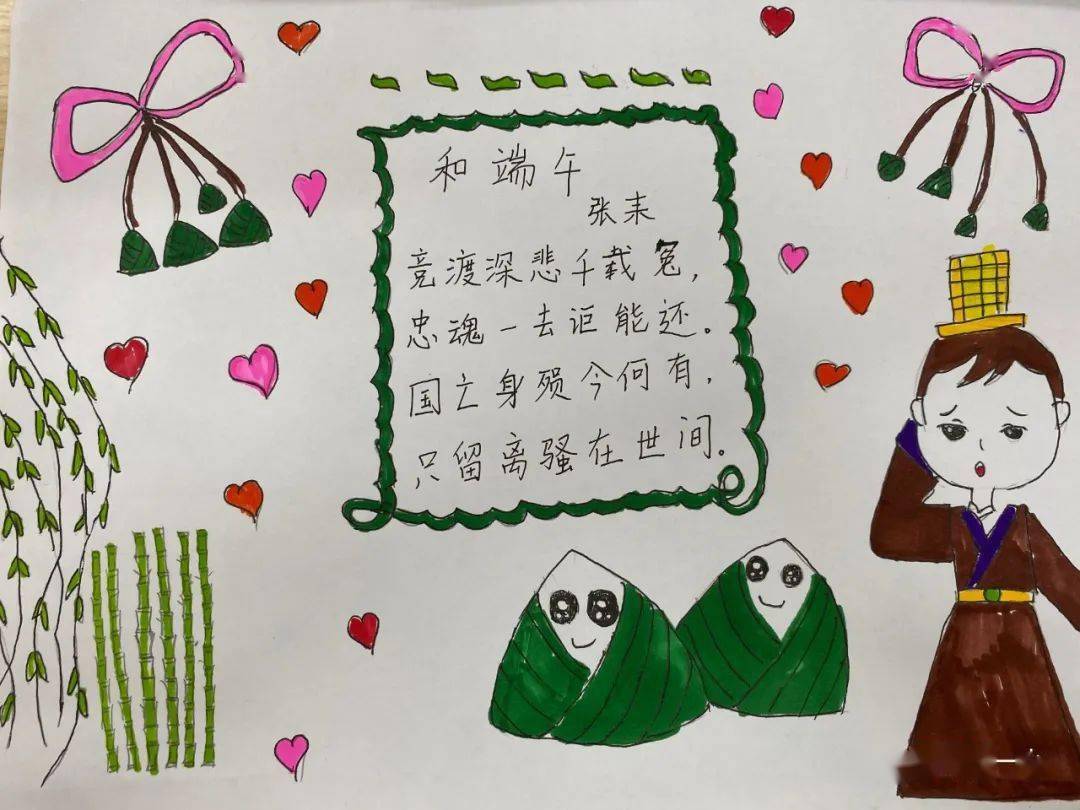 和端午
张耒
竞渡深悲千载冤,
忠魂一去讵能还。
国亡身殒今何有,
只留离骚在世间。